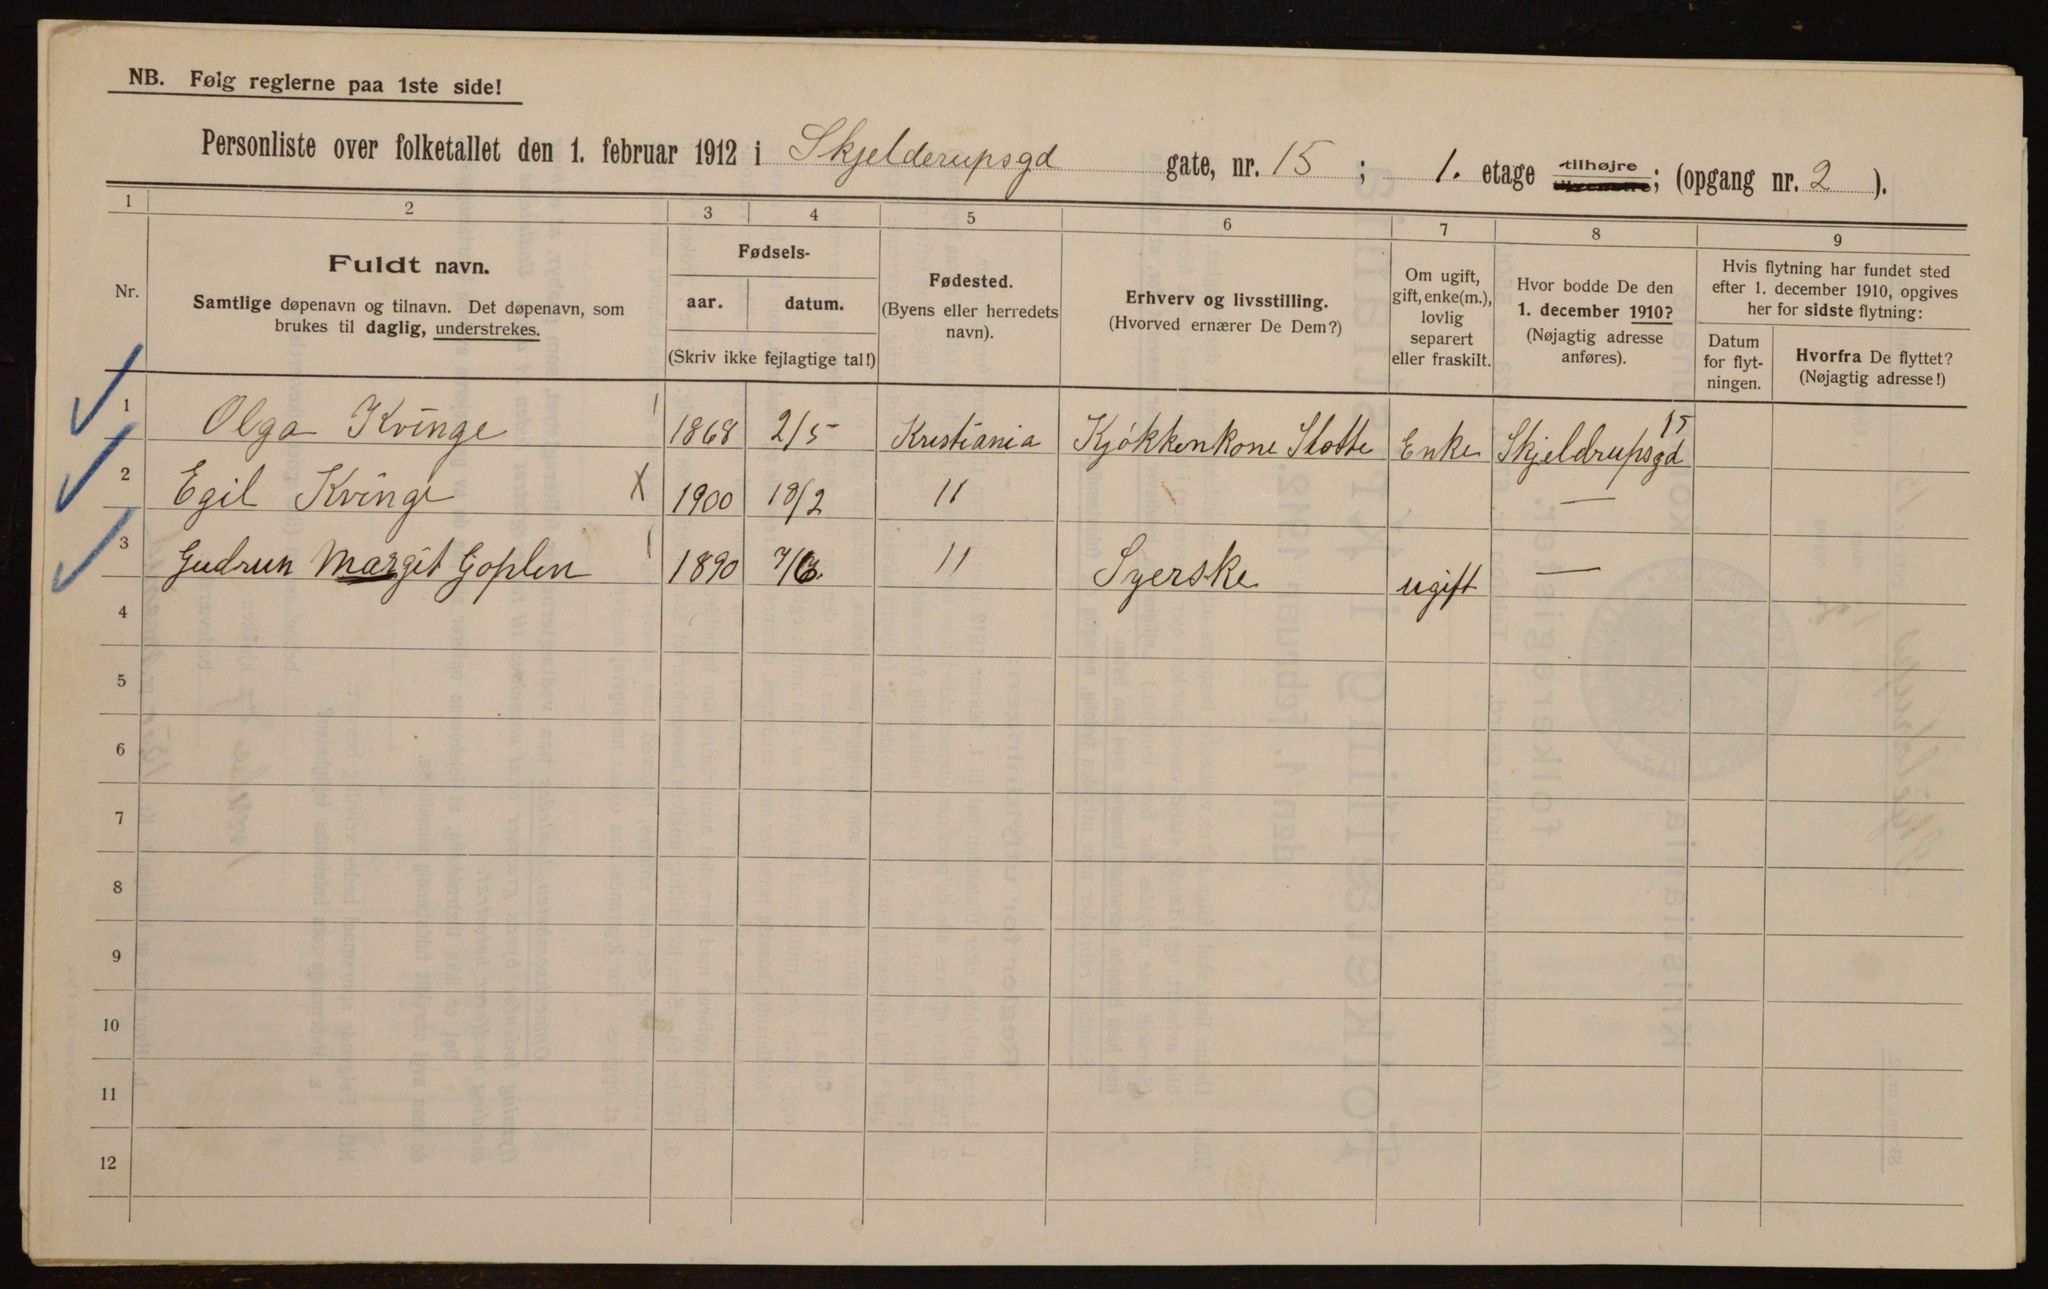 NB. Følg reglerne paa 1ste side!
Personliste over folketallet den 1. februar 1912 i Skjelderupsgd gate, nr. 15 ; 1. etage tilhøjre tilvenstre; (opgang nr. 2 ).
1 2 3 4 5 6 7 8 9
Nr.
Fuldt navn.
Samtlige døpenavn og tilnavn. Det døpenavn, som
brukes til daglig, understrekes.
Fødsels-
aar. datum.
(Skriv ikke fejlagtige tal!)
Fødested.
(Byens eller herredets
navn).
Erhverv og livsstilling.
(Hvorved ernærer De Dem?)
Om ugift,
gift, enke(m.),
lovlig
separert
eller fraskilt.
Hvor bodde De den
1. december 1910?
(Nøjagtig adresse
anføres).
Hvis flytning har fundet sted
efter 1. december 1910, opgives
her for sidste flytning:
Datum
for flyt-
ningen.
Hvorfra De flyttet?
(Nøjagtig adresse!)
1 Olga Kvinge 1 1868 2/5 Kristiania Kjøkkenkone Slotte Enke Skjeldrupsgd 15
2 Egil Kvinge X 1900 18/2 11 —
3 Gudrun Margit Goplen 1 1890 11 Syerske ugift —
4
5
6
7
8
9
10
11
12